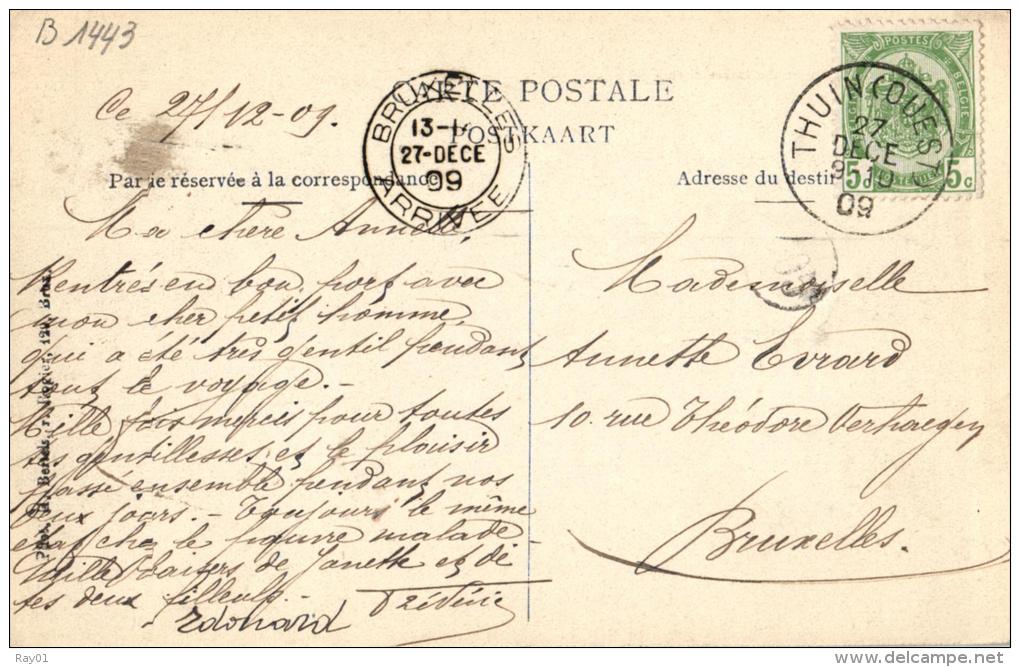 B 1443
CARTE POSTALE
POSTKAART
Ce 27/12-09.
BRUXELLES
13-1
27-DECE
09
ARRIVEE
THUIN (OUEST)
27
DECE
9-10
09
POSTES
BELGIE
5c 5c
Partie réservée à la correspondance
Adresse du destin
Ma chère Annette,
Rentrés en bon port avec
mon cher petit homme,
qui a été très gentil pendant
tout le voyage. -
Mille fois mercis pour toutes
tes gentillesses et le plaisir
passé ensemble pendant nos
deux jours. - Toujours le même
etat chez le pauvre malade
Mille baisers de Janette et de
tes deux filleuls. -
Frédéric
Edouard
Mademoiselle
Annette Evrard
10 rue Théodore Verhaegen
Bruxelles.
Ray01
http://www.delcampe.net